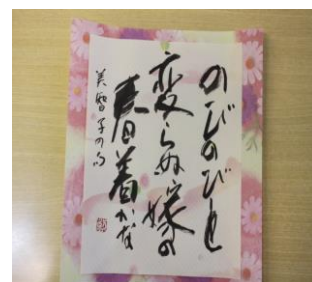 のびのびと
変らぬ嫁の
春着かな
美智子の句